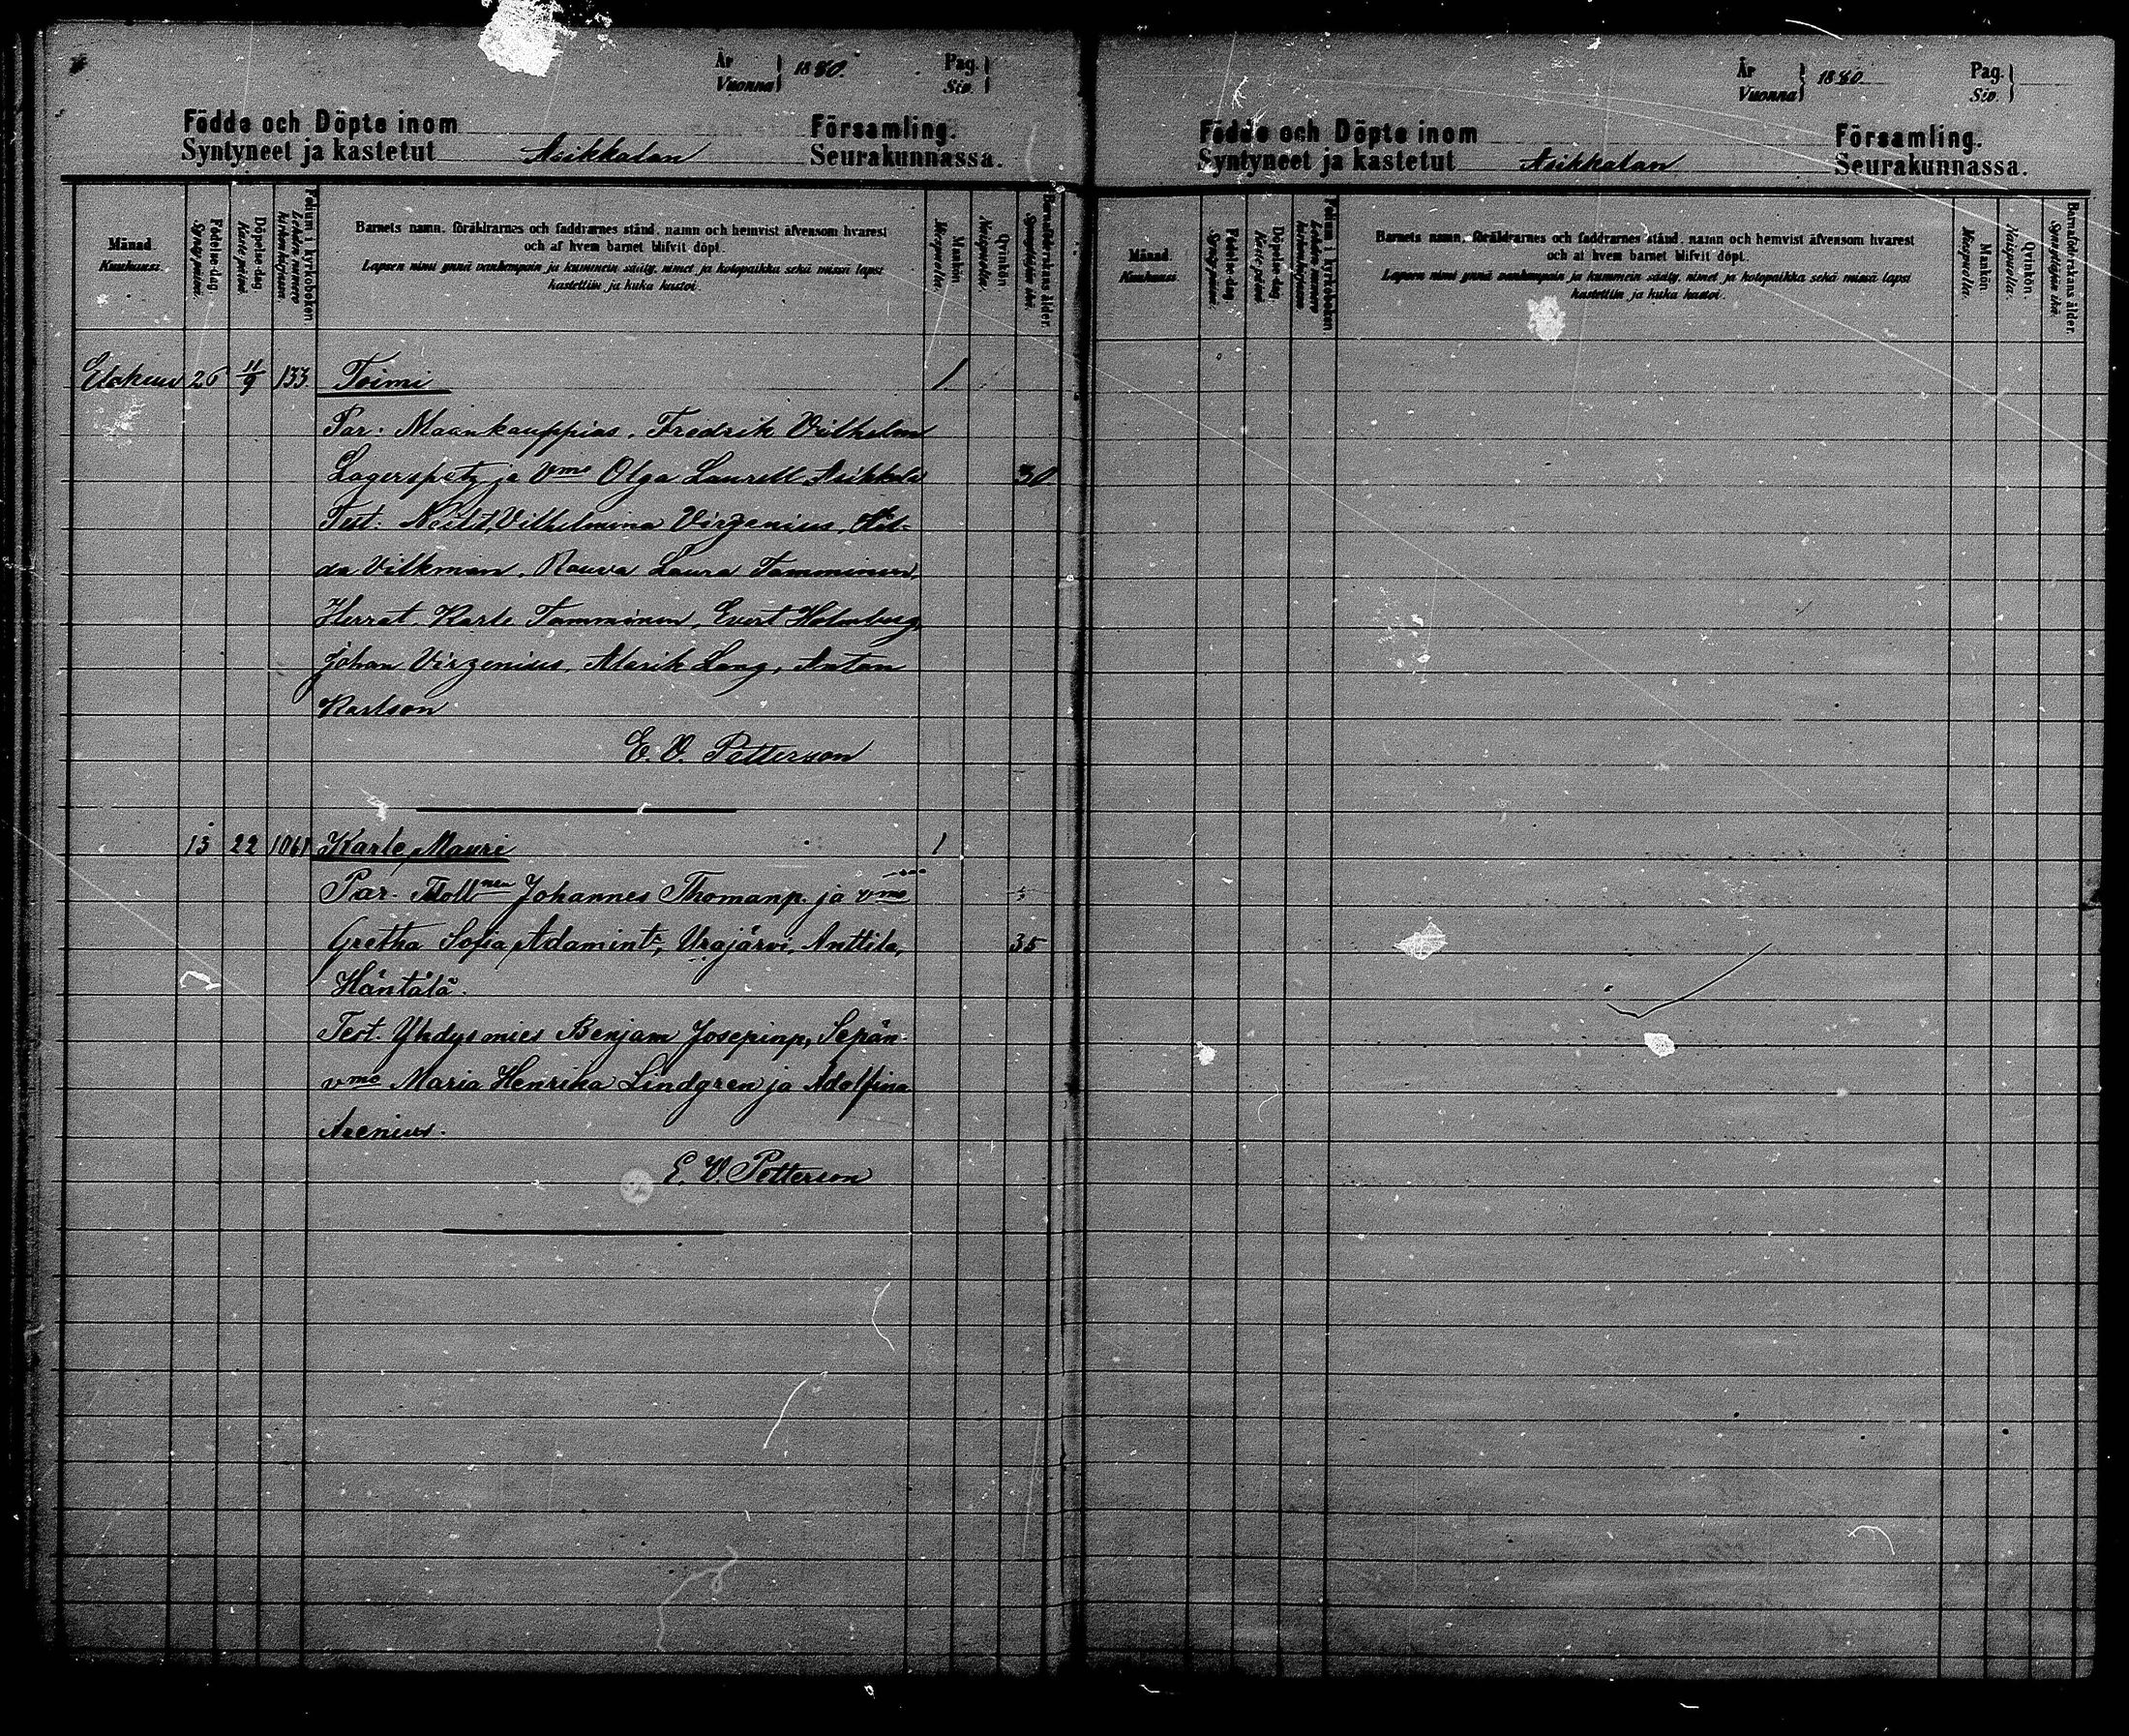 År
Vuonna } 1880.
Pag.
Siv.
Födde och Döpte inom Församling.
Syntyneet ja kastetut Asikkalan Seurakunnassa.
Månad.
Kuukausi.
Födelse-dag.
Synty päivä.
Döpelse-dag.
Kaste päivä.
Folium i kyrkoboken.
Lehden numero
kirkonkirjassa.
Barnets namn, föräldrarnes och faddrarnes stånd, namn och hemvist äfvensom hvarest
och af hvem barnet blifvit döpt.
Lapsen nimi ynnä vanhempain ja kummein sääty, nimet ja kotopaikka sekä missä lapsi
kastettiin ja kuka kastoi.
Mankön
Miespuolia.
Qvinkön
Naispuolia.
Barnaföderskans ålder.
Synnyttäjän ikä.
Elokuu 26 11/9 133 Toimi 1
Par. Maankauppias, Fredrik Vilhelm
Lagerspetz ja Vmo Olga Laurell Asikkala 30
Test. Vilhelmina Virzenius, Hil-
da Vilkman, Rouva Laura Tamminen,
Herrat, Karle Tamminen, Evert Holmberg,
Johan Virzenius, Alarik Lang, Anton
Karlson
E. V. Petterson
13 22 1061 Karle Mauri 1
Par. Johannes Thomanp. ja vmo
Gretha Sofia Adamint:, Urajärvi, Anttila, 35
Häntälä.
Test. Yhdysmies Benjam Josepinp, Sepän
vmo Maria Henrika Lindgren ja Adolfina
Arenius.
E. V. Petterson
År
Vuonna } 1880
Pag.
Siv.
Födde och Döpte inom Församling.
Syntyneet ja kastetut Asikkalan Seurakunnassa.
Månad.
Kuukausi.
Födelse-dag.
Synty päivä.
Döpelse-dag.
Kaste päivä.
Folium i kyrkoboken.
Lehden numero
kirkonkirjassa.
Barnets namn, föräldrarnes och faddrarnes stånd, namn och hemvist äfvensom hvarest
och af hvem barnet blifvit döpt.
Lapsen nimi ynnä vanhempain ja kummein sääty, nimet ja kotopaikka sekä missä lapsi
kastettiin ja kuka kastoi.
Mankön
Miespuolia.
Qvinkön.
Naispuolia.
Barnaföderskans ålder.
Synnyttäjän ikä.